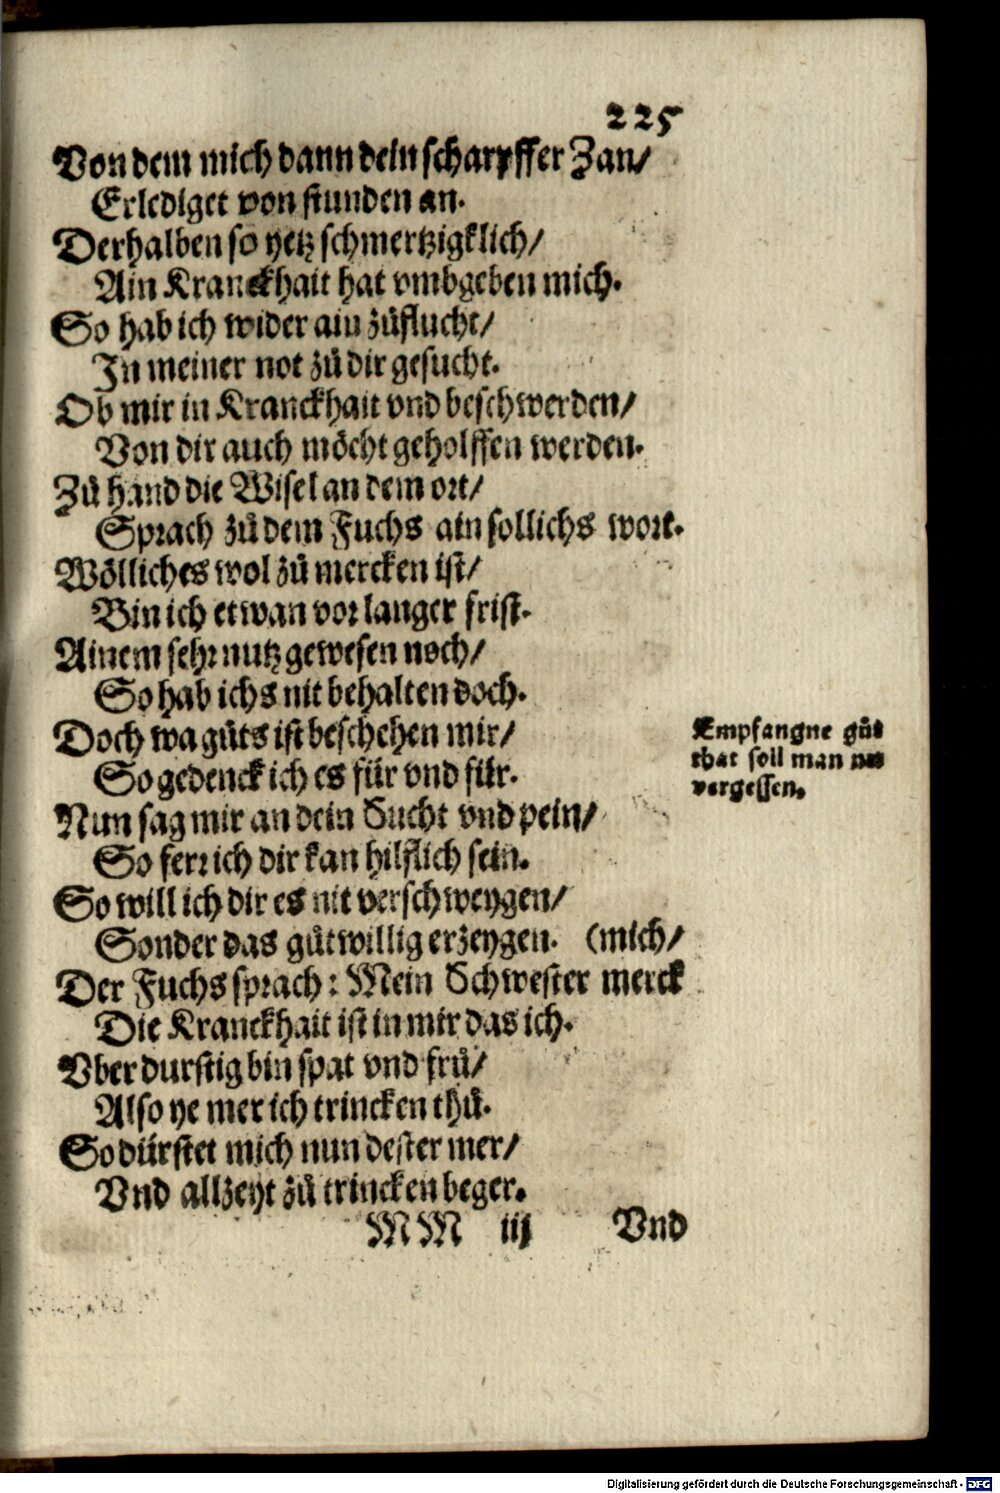 225
Von dem mich dann dein scharpffer Zan/
Erlediget von stunden an.
Derhalben so yetz schmertzigklich/
Ain Kranckhait hat vmbgeben mich.
So hab ich wider ain zůflucht/
In meiner not zů dir gesucht.
Ob mir in Kranckhait vnd beschwerden/
Von dir auch möcht geholffen werden.
Zů hand die Wisel an dem ort/
Sprach zů dem Fuchs ain sollichs wort.
Wölliches wol zů mercken ist/
Bin ich etwan vor langer frist.
Ainem sehr nutz gewesen noch/
So hab ichs nit behalten doch.
Doch wa gůts ist beschehen mir/
So gedenck ich es für vnd für.
Empfangne gůt
that soll man nit
vergessen.
Nun sag mir an dein Sucht vnd pein/
So ferr ich dir kan hilflich sein.
So will ich dir es nit verschweygen/
Sonder das gůtwillig erzeygen. (mich/
Der Fuchs sprach: Mein Schwester merck
Die Kranckhait ist in mir das ich.
Vber durstig bin spat vnd frů/
Also ye mer ich trincken thů.
So dürstet mich nun dester mer/
Vnd allzeyt zů trincken beger.
MM iij Vnd
Digitalisierung gefördert durch die Deutsche Forschungsgemeinschaft - DFG